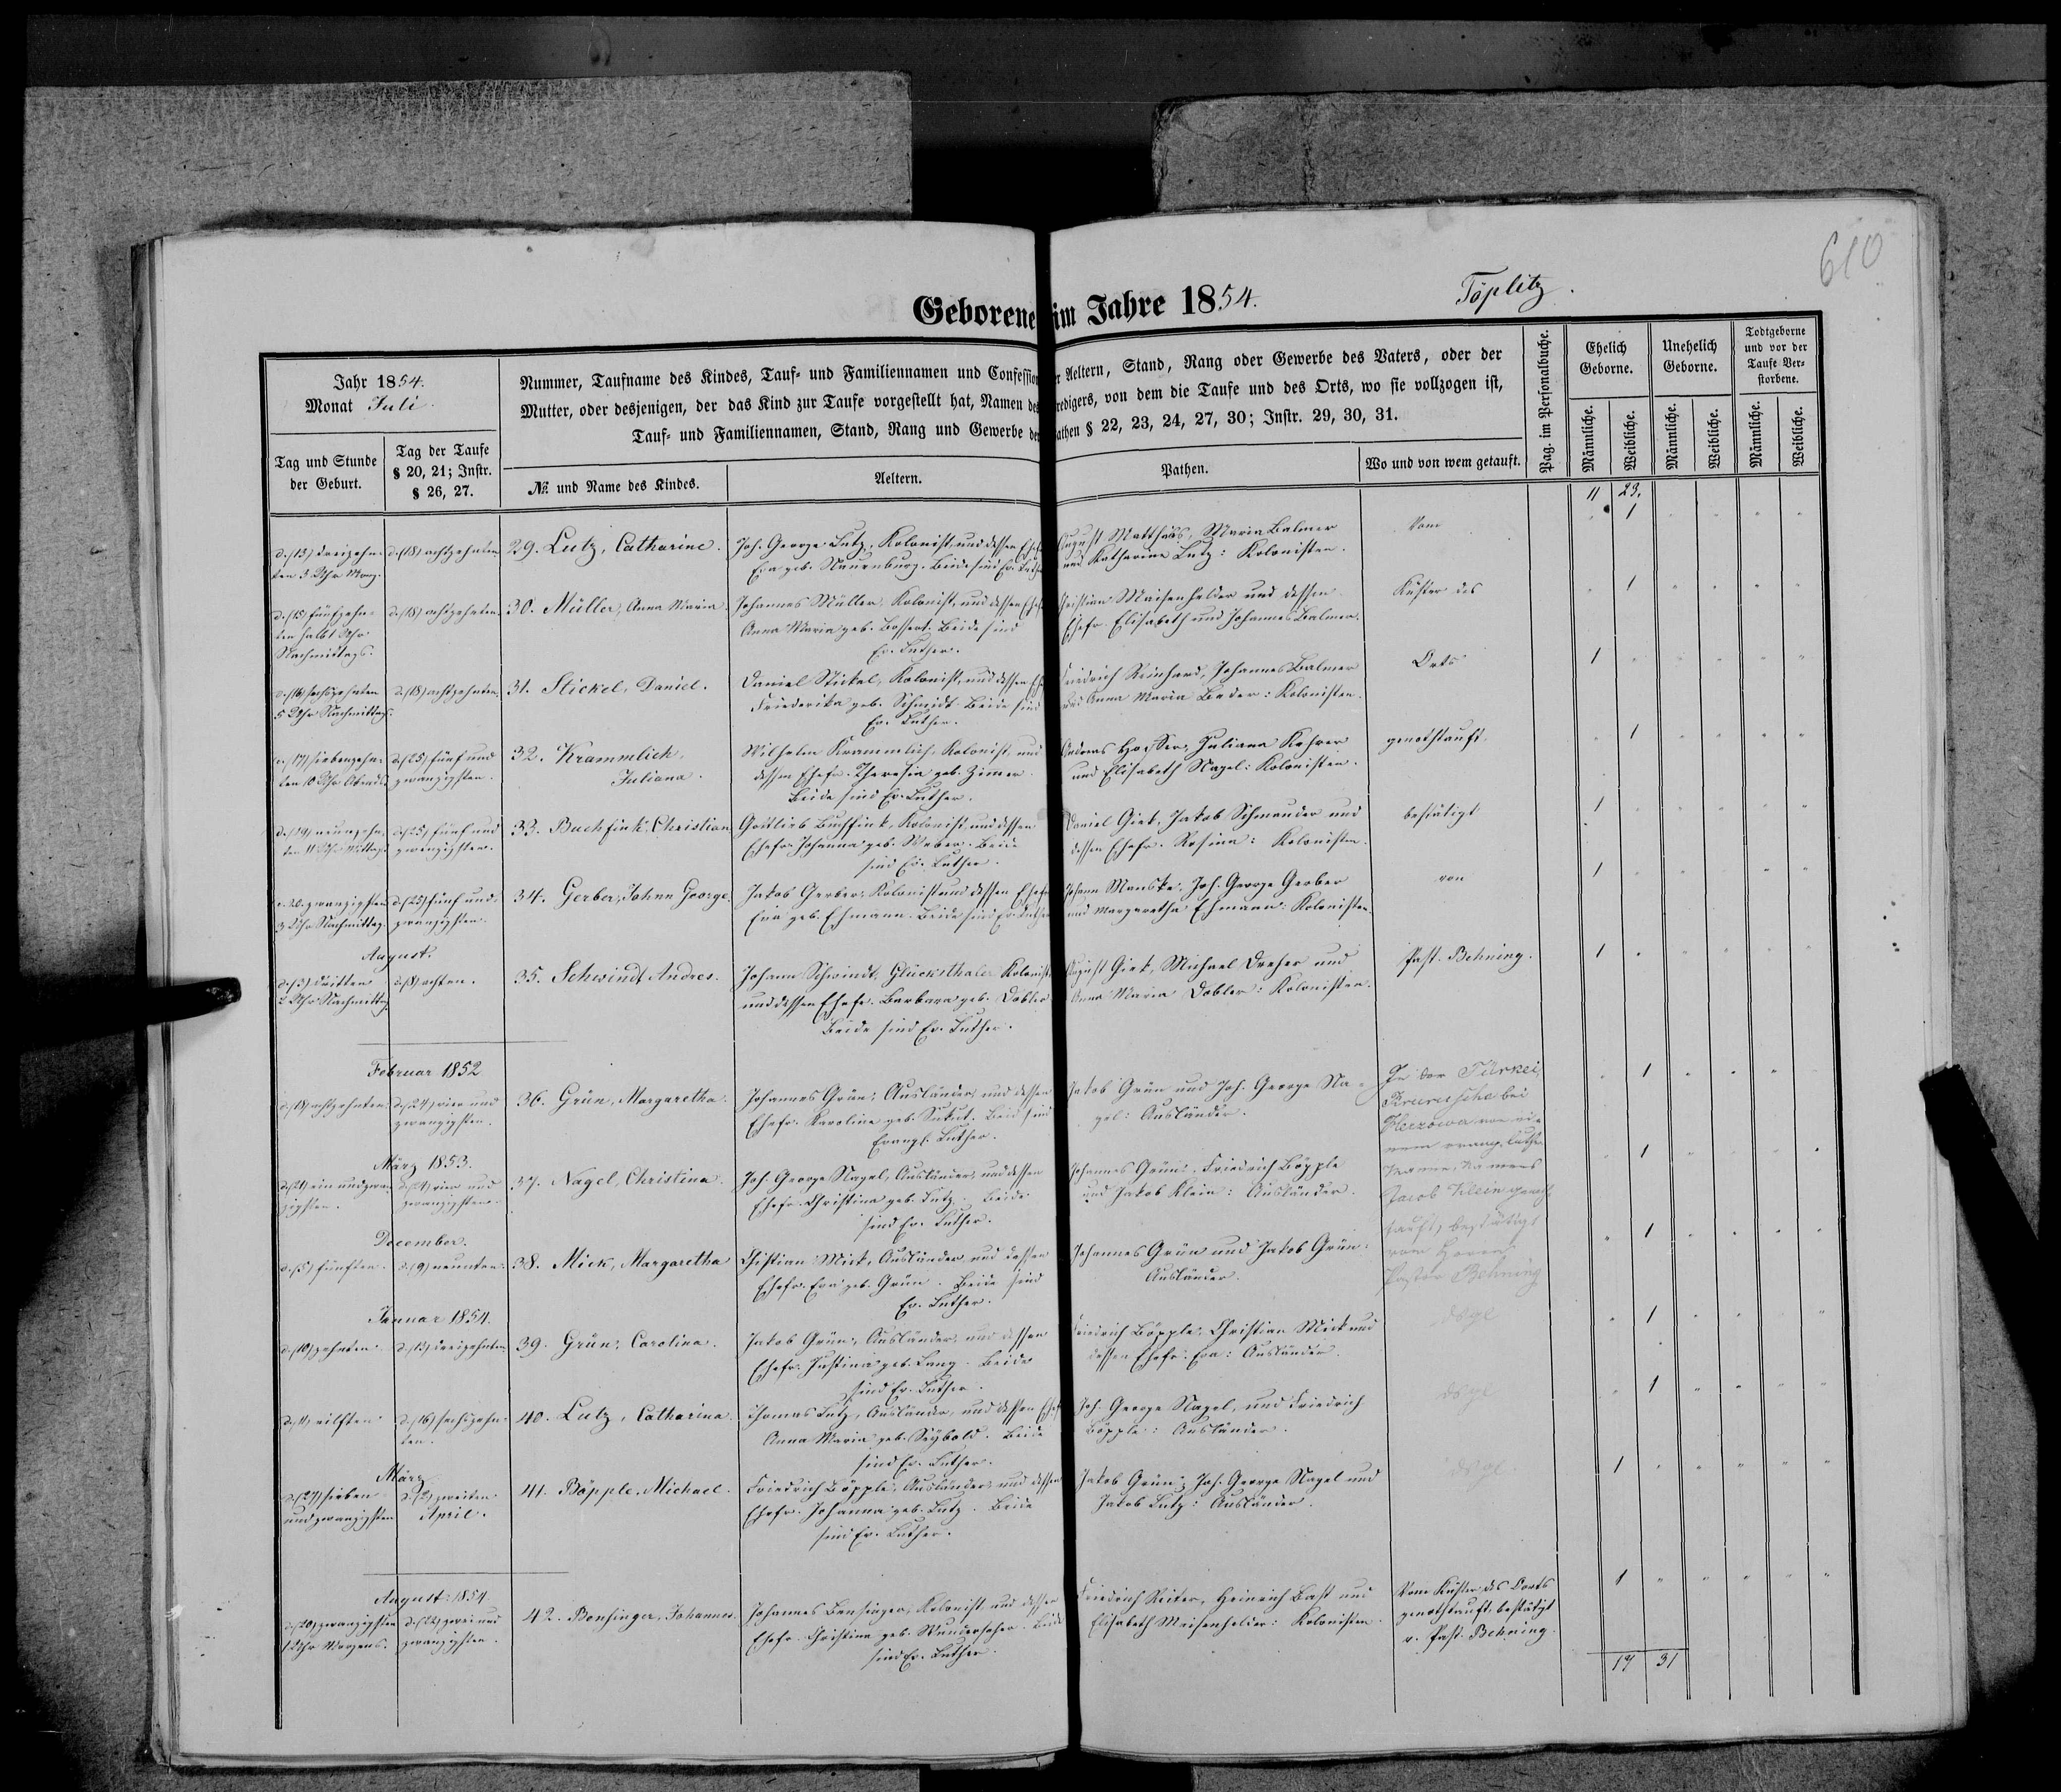 610
Töplitz.
Geborene im Jahre 1854.
Jahr 1854.
Monat Juli.
Tag und Stunde der Geburt.
Tag der Taufe § 20, 21; Instr. § 26, 27.
Nummer, Taufname des Kindes, Tauf- und Familiennamen und Confession der Aeltern, Stand, Rang oder Gewerbe des Vaters, oder der
Mutter, oder desjenigen, der das Kind zur Taufe vorgestellt hat, Namen des Predigers, von dem die Taufe und des Orts, wo sie vollzogen ist,
Tauf- und Familiennamen, Stand, Rang und Gewerbe der Pathen § 22, 23, 24, 27, 30; Instr. 29, 30, 31.
№ und Name des Kindes.
Aeltern.
Pathen.
Wo und von wem getauft.
Pag. im Personalbuche.
Ehelich Geborne.
Unehelich Geborne.
Todtgeborne und vor der Taufe Verstorbene.
Männliche. Weibliche. Männliche. Weibliche. Männliche. Weibliche.
11 23.
d. (13) dreizehnten 3 Uhr Morg.
d. (18) achtzehnten
29. Lutz, Catharine.
Joh. George Lutz, Kolonist, und dessen Ehefr.
Eva geb. Naurnburg. Beide sind Ev. Luther.
August Matthäus, Maria Balmer
und Katharina Lutz: Kolonisten.
Vom
1
d. (15) fünfzehnten halb 1 Uhr Nachmittags.
d. (18) achtzehnten
30. Müller, Anna Maria.
Johannes Müller, Kolonist, und dessen Ehefr.
Anna Maria geb. Bossert. Beide sind
Ev. Luther.
Christian Maisenhelder und dessen
Ehefr. Elisabeth und Johannes Balmer.
Küster des
1
d. (16) sechszehnten 5 Uhr Nachmittags.
d. (18) achtzehnten
31. Stickel, Daniel.
Daniel Stickel, Kolonist, und dessen Ehefr.
Friederika geb. Schmidt. Beide sind
Ev. Luther.
Friedrich Reinhard, Johannes Balmer
und Anna Maria Bader: Kolonisten.
Orts
1
d. (17) siebenzehnten 10 Uhr Abends.
d. (25) fünf und zwanzigsten.
32. Krammlich,
Juliana.
Wilhelm Krammlich, Kolonist, und
dessen Ehefr. Theresia geb. Zimer.
Beide sind Ev. Luther.
Andreas Hosser, Juliana Kehrer
und Elisabeth Nagel: Kolonisten.
genothtauft.
1
d. (19) neunzehnten 11 Uhr Mittags.
d. (25) fünf und zwanzigsten.
33. Buchfink, Christian
Gottlieb Buchfink, Kolonist, und dessen
Ehefr. Johanna geb. Weber. Beide
sind Ev. Luther.
Daniel Giek, Jakob Schmauder und
dessen Ehefr. Rosina: Kolonisten.
bestätigt
1
d. 20. zwanzigsten 3 Uhr Nachmittag.
d. (25) fünf und zwanzigsten.
34. Gerber, Johann George.
Jakob Gerber, Kolonist und dessen Ehefr.
Eva geb. Ehmann. Beide sind Ev. Luther.
Johann Manske, Joh. George Gerber
und Margaretha Ehmann: Kolonisten.
von
1
August.
d. (3) dritten 2 Uhr Nachmittag.
d. (8) achten.
35. Schwindt, Andres.
Johann Schwindt, Glücksthaler Kolonist,
und dessen Ehefr. Barbara geb. Dobler
Beide sind Ev. Luther.
August Giek, Michael Dreher und
Anna Maria Dobler: Kolonisten.
Past. Behning.
1
Februar 1852
d. (18) achtzehnten
d. (24) vier und zwanzigsten.
36. Grün, Margaretha.
Johannes Grün, Ausländer, und dessen
Ehefr. Karolina geb. Sukut. Beide sind
Evangl. Luther.
Jakob Grün und Joh. George Nagel: Ausländer.
In der Türkei,
bei
von einem evang. Luther.
Namens
Jacob Klein genothtauft, bestätigt
vom Herrn
Pastor Behning
1
März 1853.
d. (21) ein und zwanzigsten.
d. (24) vier und zwanzigsten.
37. Nagel, Christina.
Joh. George Nagel, Ausländer, und dessen
Ehefr. Christina geb. Lutz. Beide
sind Ev. Luther.
Johannes Grün, Friedrich Böpple
und Jakob Klein: Ausländer.
1
December.
d. (5) fünften.
d. (9) neunten.
38. Mick, Margaretha
Christian Mick, Ausländer und dessen
Ehefr. Eva geb. Grün. Beide sind
Ev. Luther.
Johannes Grün und Jakob Grün:
Ausländer.
1
Januar 1854.
d. (10) zehnten.
d. (13) dreizehnten
39. Grün, Carolina.
Jakob Grün, Ausländer, und dessen
Ehefr. Justina geb. Lang. Beide
sind Ev. Luther.
Friedrich Böpple, Christian Mick und
dessen Ehefr. Eva: Ausländer.
dsgl
1
d. (11) eilften.
d. (16) sechszehnten.
40. Lutz, Catharina.
Thomas Lutz, Ausländer, und dessen Ehefr.
Anna Maria geb. Seybold. Beide
sind Ev. Luther.
Joh. George Nagel, und Friedrich
Böpple: Ausländer.
dsgl
1
März
d. (27) sieben und zwanzigsten
d. (2) zweiten April.
41. Böpple, Michael.
Friedrich Böpple, Ausländer, und dessen
Ehefr. Johanna geb. Lutz. Beide
sind Ev. Luther.
Jakob Grün, Joh. George Nagel und
Jakob Lutz: Ausländer.
dsgl
1
August: 1854
d. (20) zwanzigsten 1 Uhr Morgens.
d. (22) zwei und zwanzigsten.
42. Bensinger, Johannes.
Johannes Bensinger, Kolonist und dessen
Ehefr. Christina geb. Beide
sind Ev. Luther.
Friedrich Reiter, Heinrich Bast und
Elisabeth Maisenhelder: Kolonisten.
Vom Küster des Orts
genothtauft, bestätigt
v. Past. Behning.
1
17 31